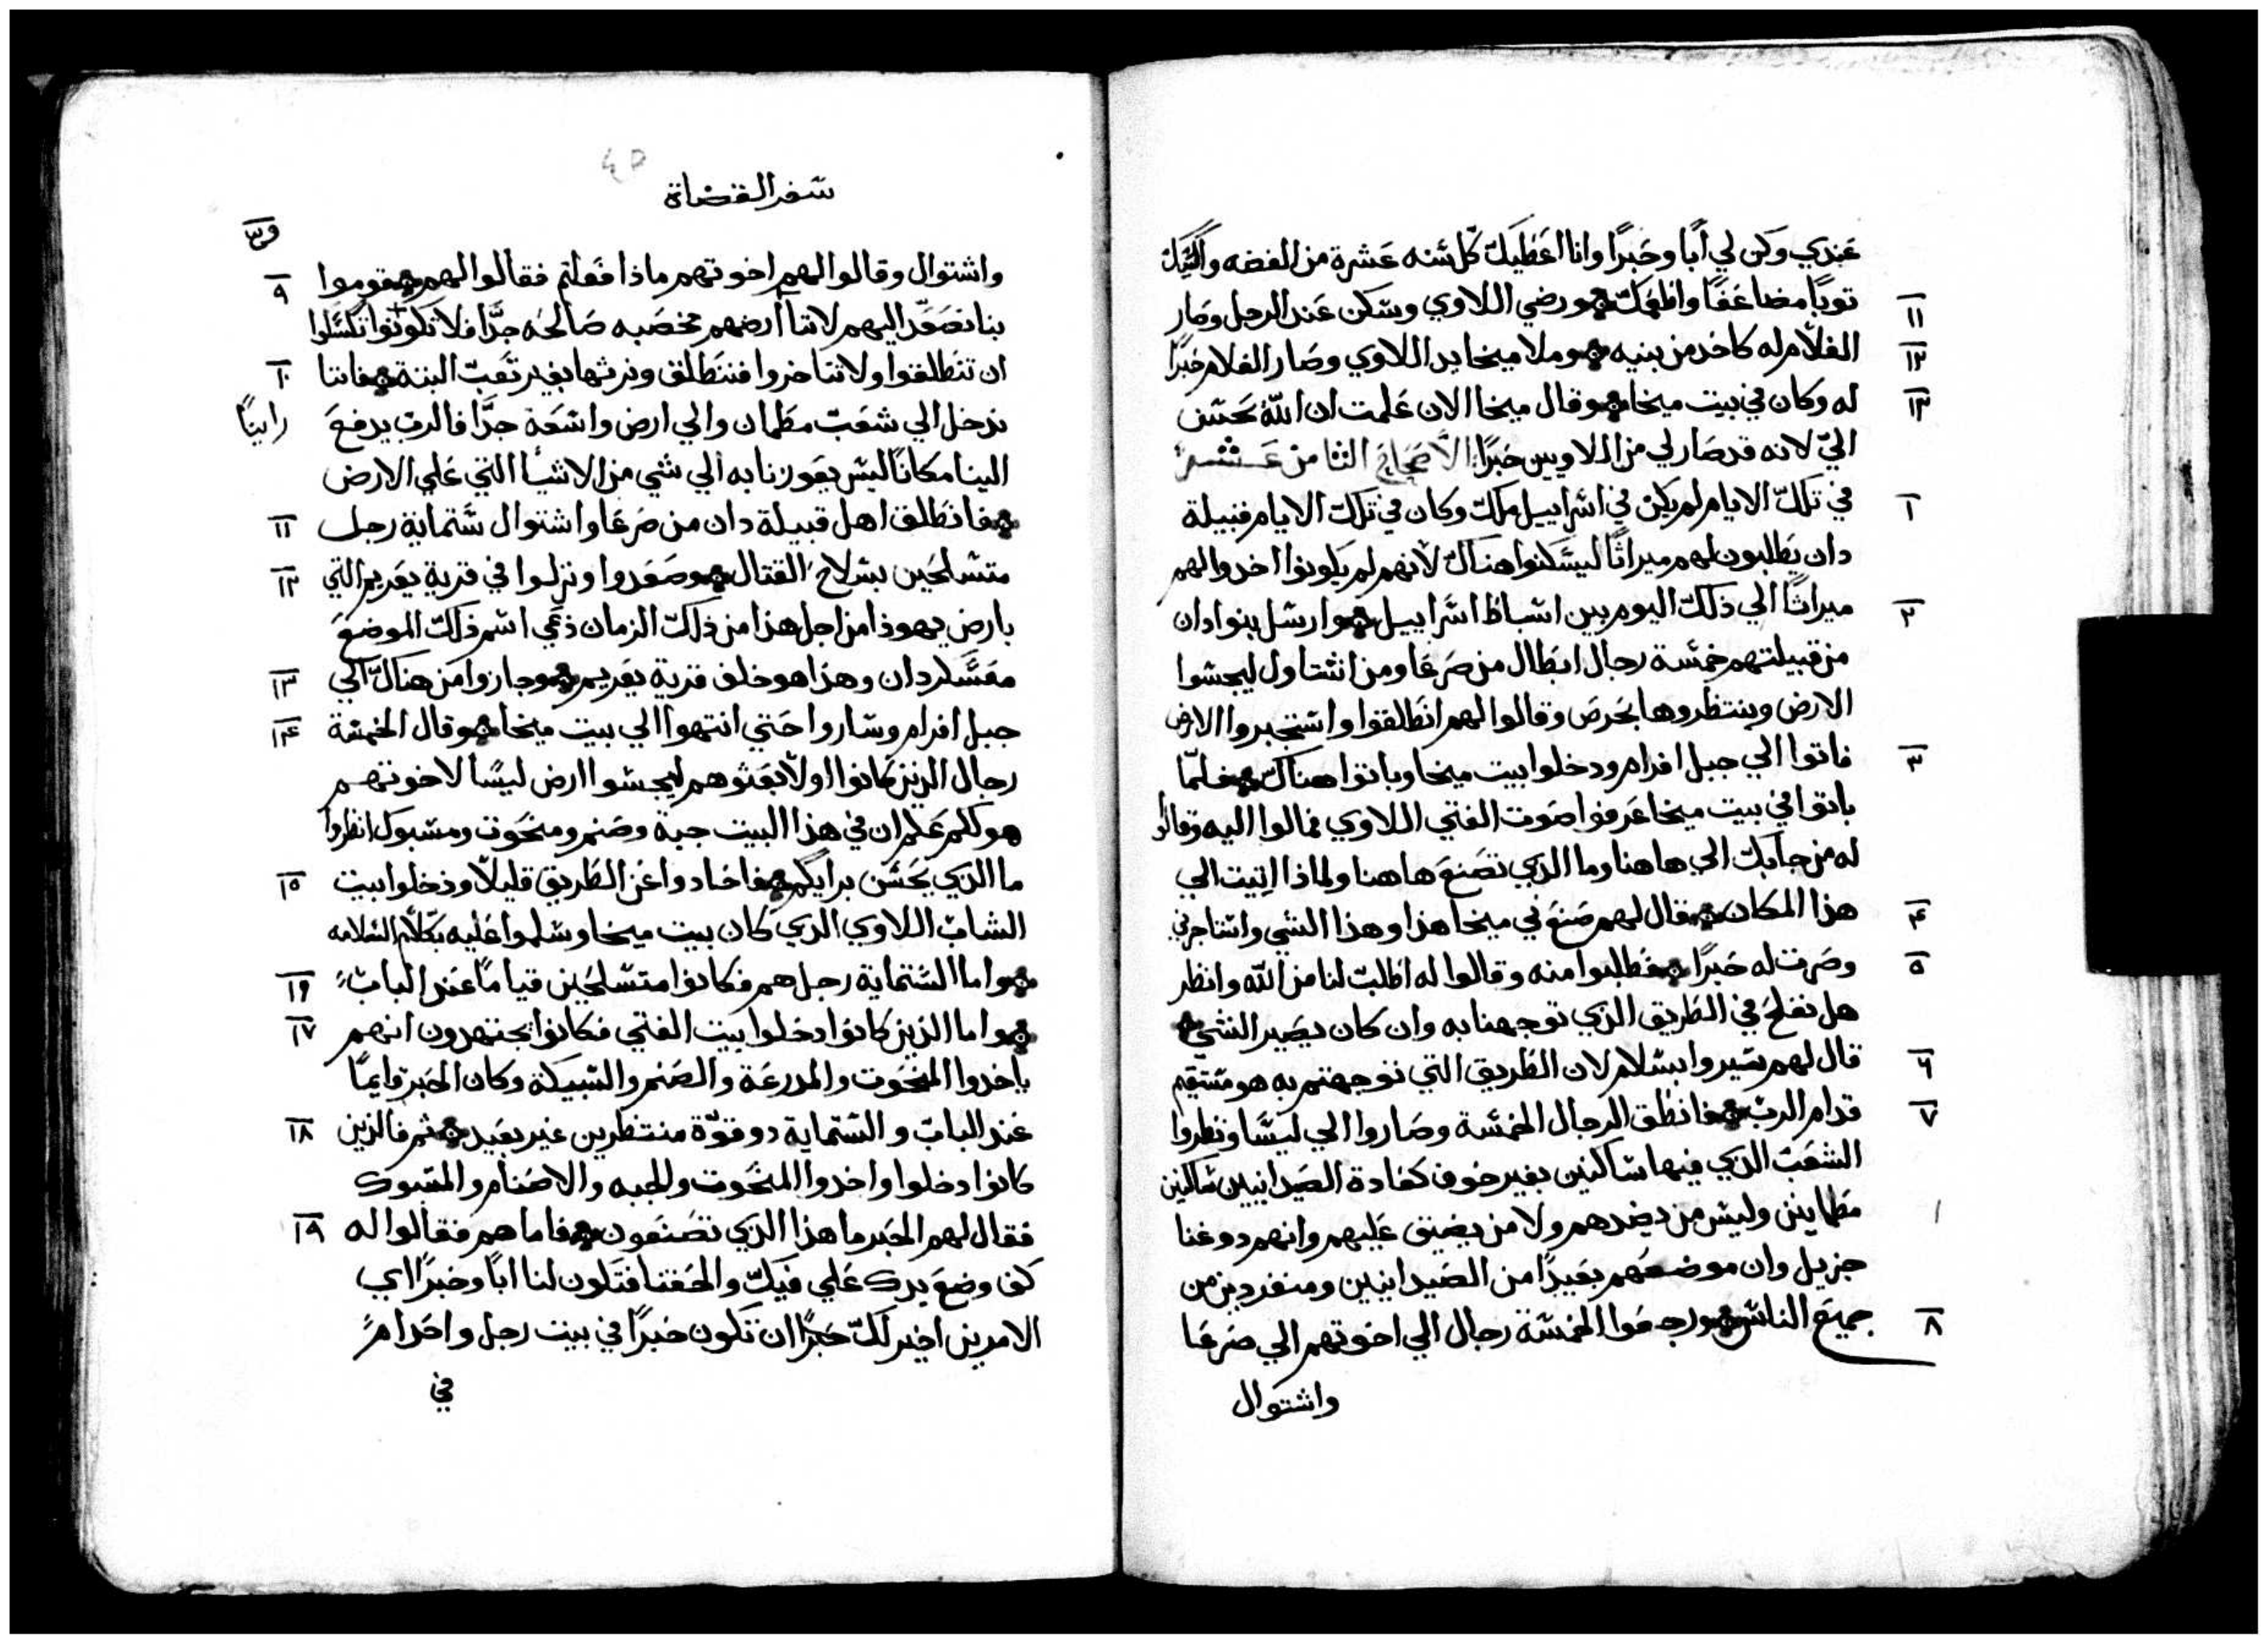 عندي وكن لي أبًا وحبرًا وانا اعطيك كل سنه عشرة من الفضه وأكسيك
١١ توبًا مضاعفًا واطعمك ورضي اللاوي وسكن عند الرجل وصار
١٢ الغلام له كاحد من بنيه وملا ميخا يد اللاوي وصار الغلام حبرًا
١٣ له وكان في بيت ميخا وقال ميخا الان علمت ان الله يحسن
اليّ لانه قد صار لي من اللاويين حبرًا الأصحاح الثامن عشر
١ في تلك الايام لم يكن في اسراييل ملك وكان في تلك الايام قبيلة
دان يطلبون لهم ميراثًا ليسكنوا هناك لانهم لم يكونوا اخدوا لهم
٢ ميراثًا الي ذلك اليوم بين اسباط اسراييل وارسل بنوا دان
من قبيلتهم خمسة رجال ابطال من صرعا ومن اشتاول ليجسوا
الارض وينتظروها بحرص وقالوا لهم انطلقوا واستخبروا الارض
٣ فاتوا الي جبل افرام ودخلوا بيت ميخا وباتوا هناك فلمّا
باتوا في بيت ميخا عرفوا صوت الفتي اللاوي فمالوا اليه وقالوا
له من جابك الي هاهنا وما الذي تصنع هاهنا ولماذا اتيت الي
٤ هذا المكان فقال لهم صنع لي ميخا هذا وهذا الشي واستاجرني
٥ وصرت له حبرًا فطلبوا منه وقالوا له اطلب لنا من الله وانظر
هل نفلح في الطريق الذي توجهنا به وان كان يصير الشي
٦ قال لهم سيروا بسلام لان الطريق التي توجهتم به هو مستقيم
٧ قدام الرب فانطق الرجال الخمسة وصاروا الي ليسًا ونظروا
الشعب الذي فيها ساكنين بغير خوف كعادة الصيدانيين ساكنين
مطماينين وليس من يضدهم ولا من يضيق عليهم وانهم دو غنا
جزيل وان موضعهم بعيدًا من الصيدانيين ومنفردين من
٨ جميع الناس ورجعوا الخمسة رجال الي اخوتهم الي صرعا
واشتوال
سفر القضاة
واشتوال وقالوا لهم اخوتهم ماذا فعلتم فقالوا لهم قوموا ٩
بنا نصعد اليهم لاننا أرضهم مخصبه صالحه جدًا فلا تكونوا تكسلوا
ان تنطلقوا ولا تتاخروا فننطلق ونرثها بغير تعب البتة فاننا ١٠
ندخل الي شعب مطمان والي ارض واسعة جدًا فالرب يدفع
الينا مكانًا ليس يعوزنا به الي شي من الاشيأ التي علي الارض
فانطلق اهل قبيلة دان من صرعا واشتوال ستماية رجل ١١
متسلحين بسلاح القتال وصعدوا ونزلوا في قرية يعريم التي ١٢
بارض يهوذا من اجل هذا من ذلك الزمان دعي اسم ذلك الموضع
معسكر دان وهذا هو خلف قرية يعريم وجازوا من هناك الي ١٣
جبل افرام وساروا حتي انتهوا الي بيت ميخا وقال الخمسة ١٤
رجال الذين كانوا اولًا بعثوهم ليجسوا ارض ليسًا لاخوتهم
هو لكم علم ان في هذا البيت جبة وصنم ومنحوت ومسبوك انظروا
ما الذي يحسن برايكم فاحادوا عن الطريق قليلًا ودخلوا بيت ١٥
الشاب اللاوي الذي كان بيت ميخا وسلموا عليه بكلام السلامه
واما الستماية رجل هم فكانوا متسلحين قيامًا عند الباب ١٦
واما الذين كانوا دخلوا بيت الفتي فكانوا يجتهدون انهم ١٧
ياخدوا المنحوت والمدرعة والصنم والسبيكة وكان الحبر قايمًا
عند الباب والستماية دو قوّة منتظرين غير بعيد ثم فالذين ١٨
كانوا دخلوا واخدوا المنحوت والجبه والاصنام والمسبوك
فقال لهم الحبر ما هذا الذي تصنعون فاما هم فقالوا له ١٩
كف وضع يدك علي فيك والحقنا فتكون لنا ابًا وحبرًا اي
الامرين اخير لك حبرًا ان تكون حبرًا في بيت رجل واحد ام
في